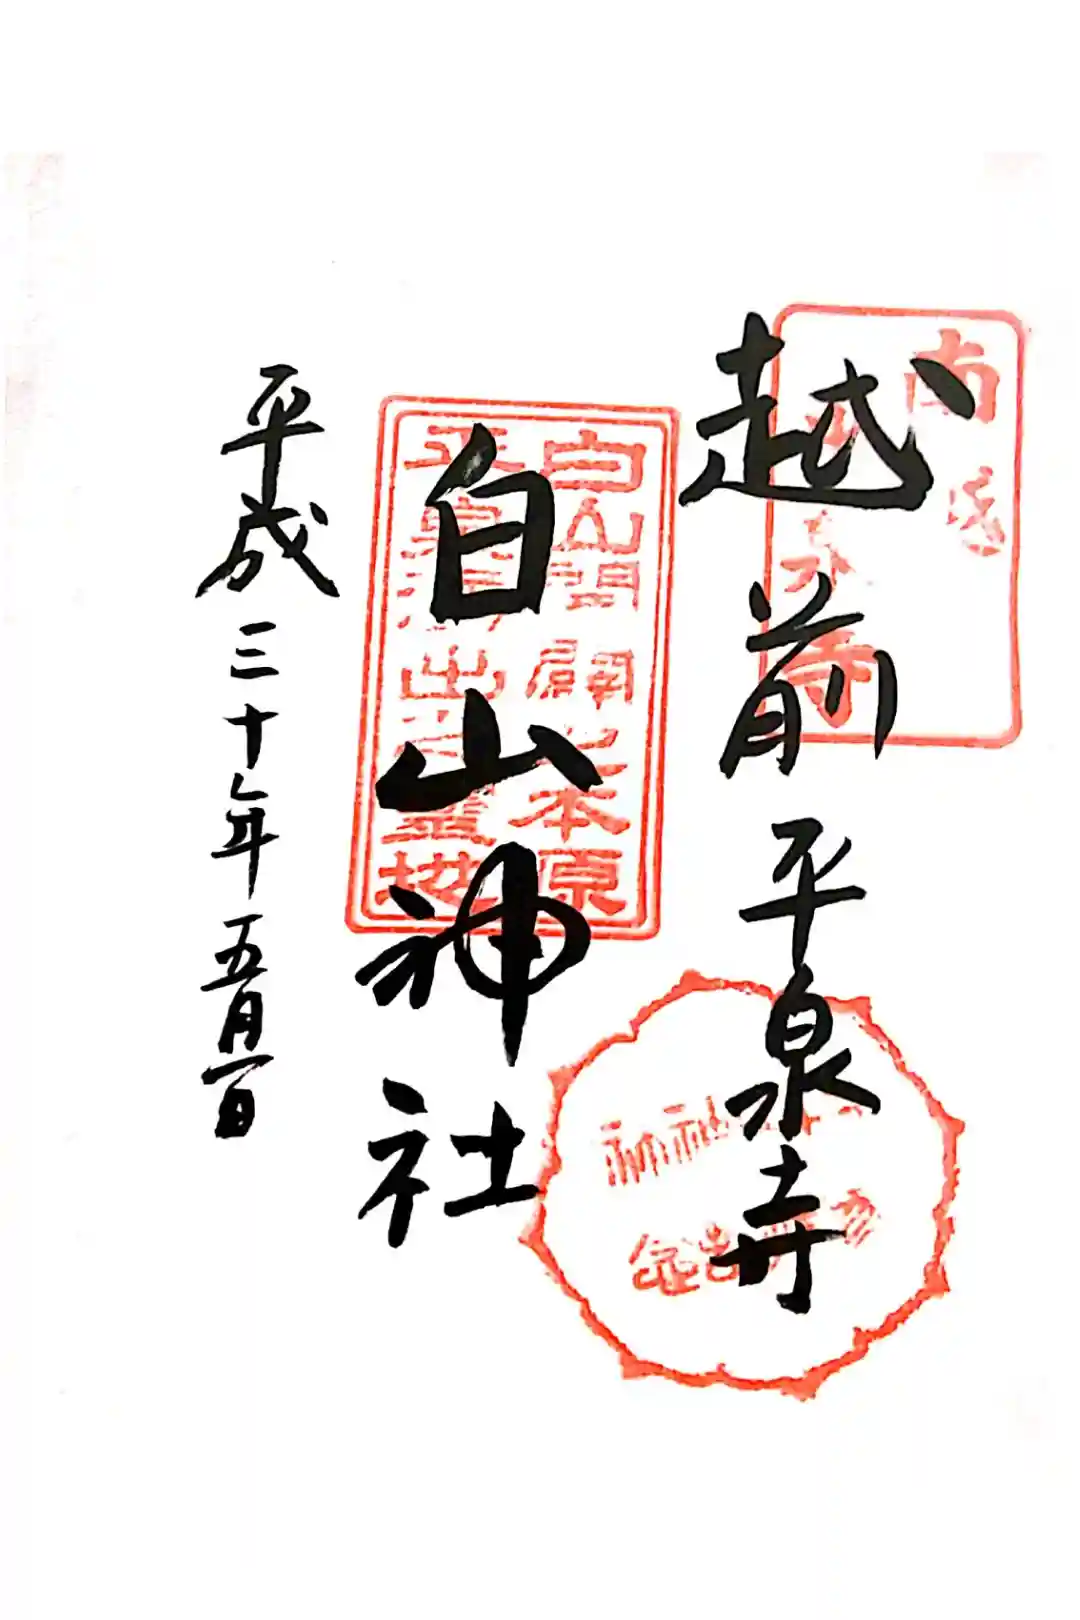 越前平泉寺
白山神社
平成三十年五月一日
白山開闢之本原
平泉涌出之霊地